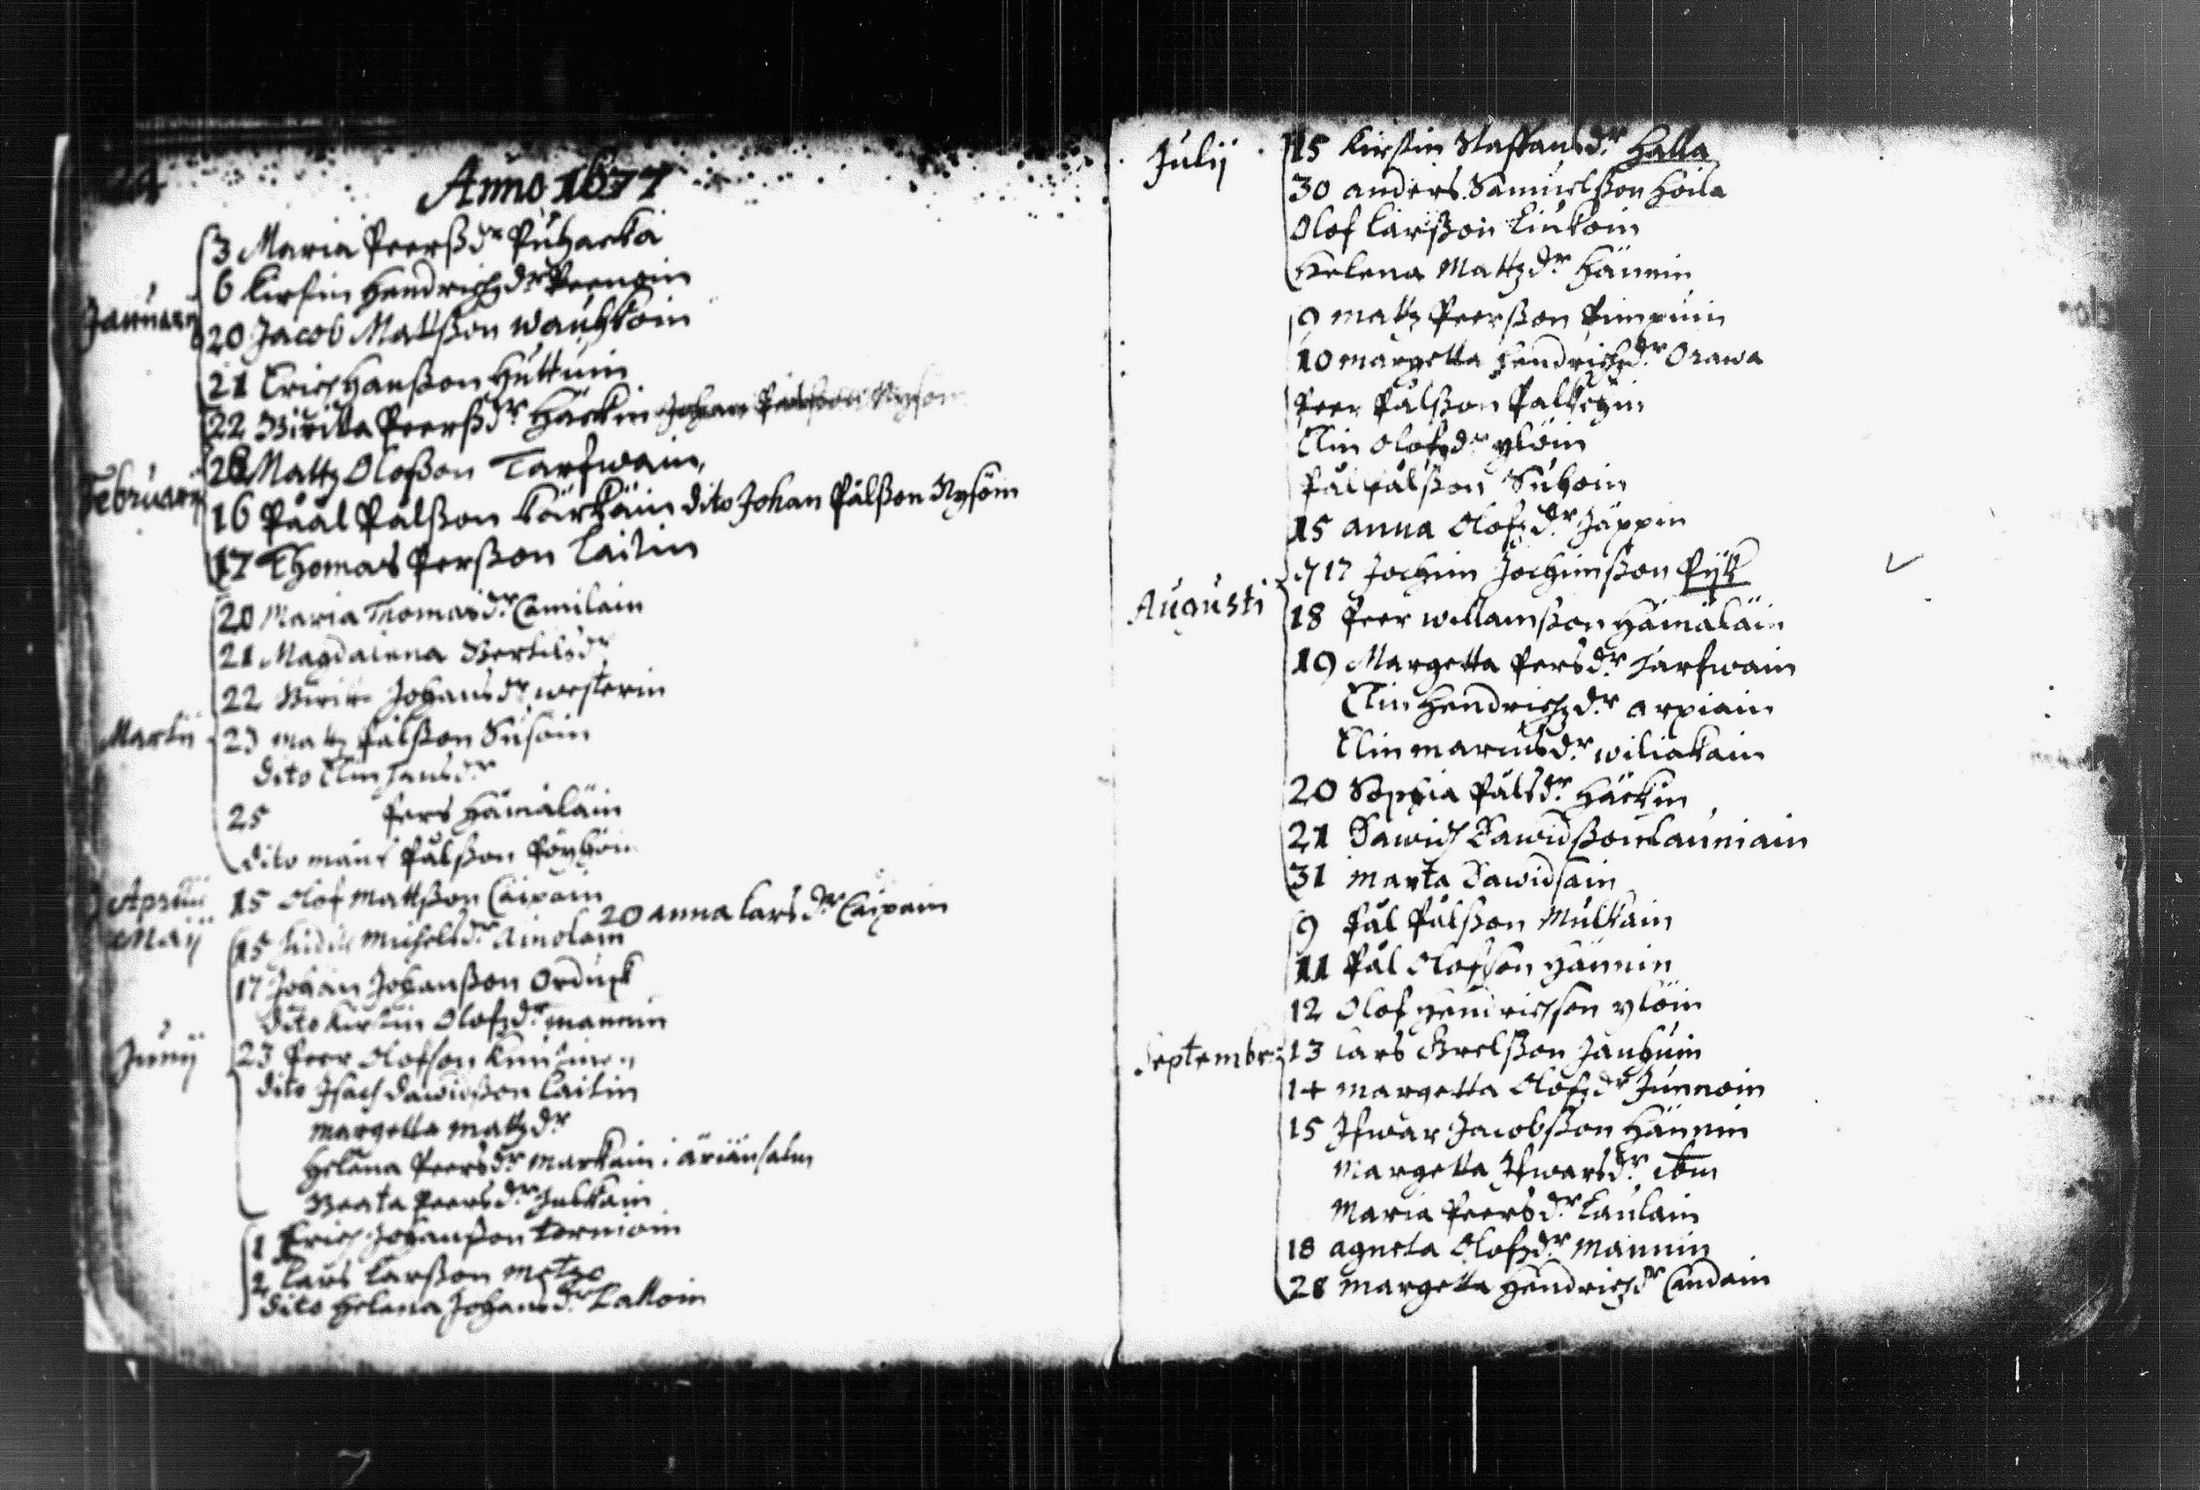 24
Anno 1677
Januarij
3 Maria Peerßdr Puhacka
6 Kirstin Hendrichzdr Peenoin
20 Jacob Matßon Wauhkoin
21 Erich Hanßon Huttuin
22 Biritta Peerßdr Häckin
Februarij
28 Mattz Oloßon Tarfwain
16 Påål Pålßon Kärkäin dito Johan Pålßon Nysöin
17 Thomas Perßon Laitin
Martij
20 Maria Thomasdr Camilain
21 Magdalena Bertilsdr
22 Johansdr westerin
23 mattz Pålßon Susoin
dito Elin Jansdr
25 Pers Hämäläin
dito måns Pålßon Pöyhöin
Aprilij
15 Olof Mattßon Caipain
20 anna Larsdr Caipain
Maij
15 Michelsdr Ainolain
17 Johan Johanßon Orduck
dito Kirstin Olofzdr mannin
Junij
23 Peer Olofson
dito Isach Dawidßon Laitin
margetta matzdr
Helena Peersdr Markain i äriänsalm
Beata Peersdr Julkkain
1 Erich Johanßon Torniain
2 Lars Larßon Metzo
dito Helena Johansdr Lakoin
Julij
15 Kirstin Staffansdr Halla
30 anders Samuelßon Hoila
Olof Larßon Liukoin
Helena Mattzdr Hännin
9 mattz Peerßon Pimpuin
10 margetta Hendrichzdr Orawa
Peer Pålßon
Elin Olofzdr ylöin
Pål Pålßon Suhoin
15 anna Olofzdr Jäppin
Augusti
17 Jochim Jochimßon Pijk
18 Peer willamßon Hämäläin
19 Margetta Persdr Tarfwain
Elin Hendrichzdr arpiain
Elin marcusdr wiliakain
20 Sophia Pålsdr Häckin
21 Dawid Dawidßon Launiain
31 marta Dawidsain
9 Pål Pålßon Mulkain
11 Pål Olofson Hännin
12 Olof Hendrichson ylöin
September
13 Lars Grelßon Janhuin
14 margetta Olofzdr Junnoin
15 Ifwar Jacobßon Hännin
Margetta Ifwarsdr ibm
Maria Peersdr Laulain
18 agneta Olofzdr Mannin
28 margetta Hendrichzdr Candain